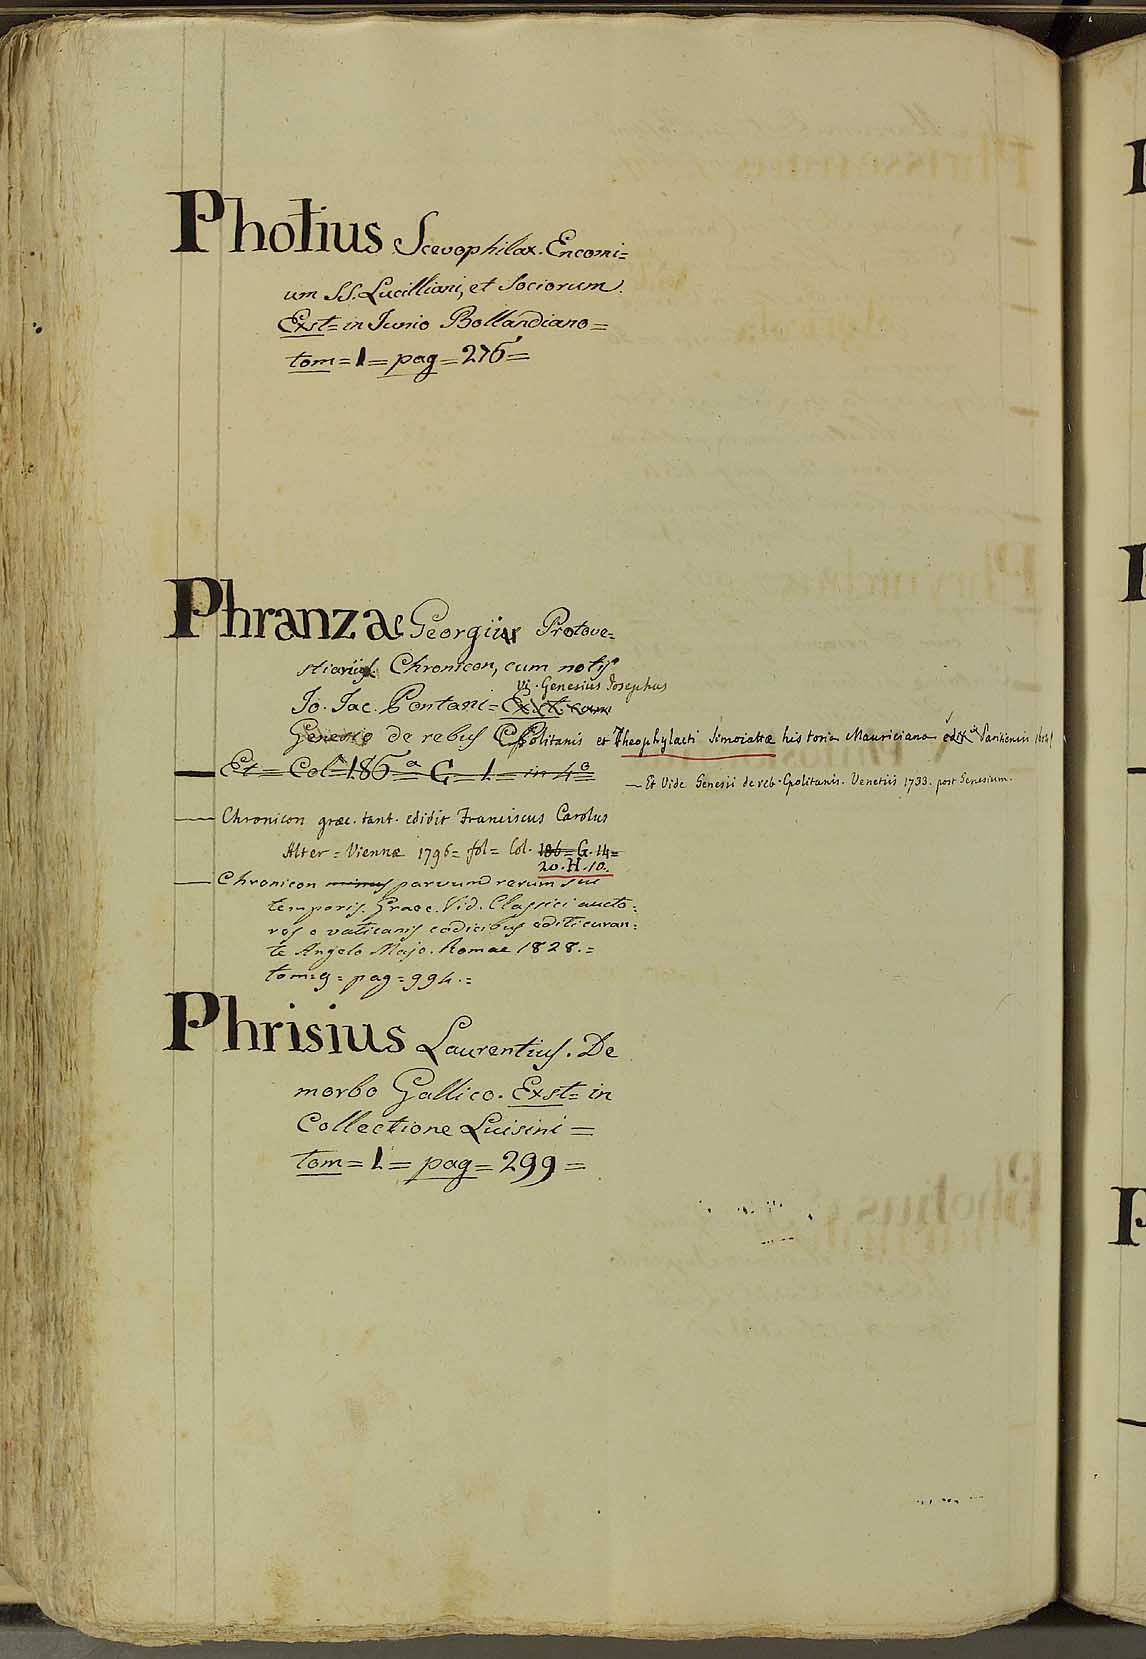 Photius Scevophilax. Encomi=
um SS. Lucilliani, et Sociorum.
Exst= in Junio Bollandiano=
tom=1=pag=276=
Phranzae Georgii Protove=
stiarii Chronicon, cum notis
vz. Genesius Josephus
Jo. Jac. Pontani= Exst. cum
Genesio de rebus CPolitanis et Theophylacti Simocattæ historia Mauriciana
Et= Col. 186 G 1 in 4º
— Et Vide Genesii de reb. Cpolitanis. Venetiis 1733. post Genesium.
— Chronicon græc. tant. edidit Franciscus Carolus
Alter= Viennæ 1796= fol= Col. 186= G. 14=
20. H. 10.
— Chronicon minus parvum rerum sui
temporis. Graec. Vid. Classici aucto=
res e vaticanis codicibus editi curan=
te Angelo Majo. Romae 1828.=
tom=9=pag=994.=
Phrisius Laurentius. De
morbo Gallico. Exst= in
Collectione Luisini=
tom=1=pag=299=